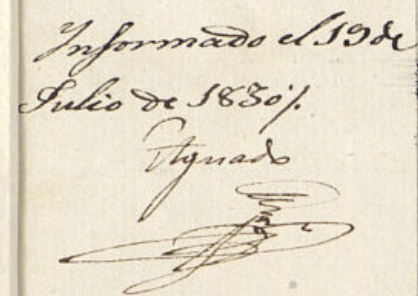 Informado el 19 de
Julio de 1830/.
Aguado